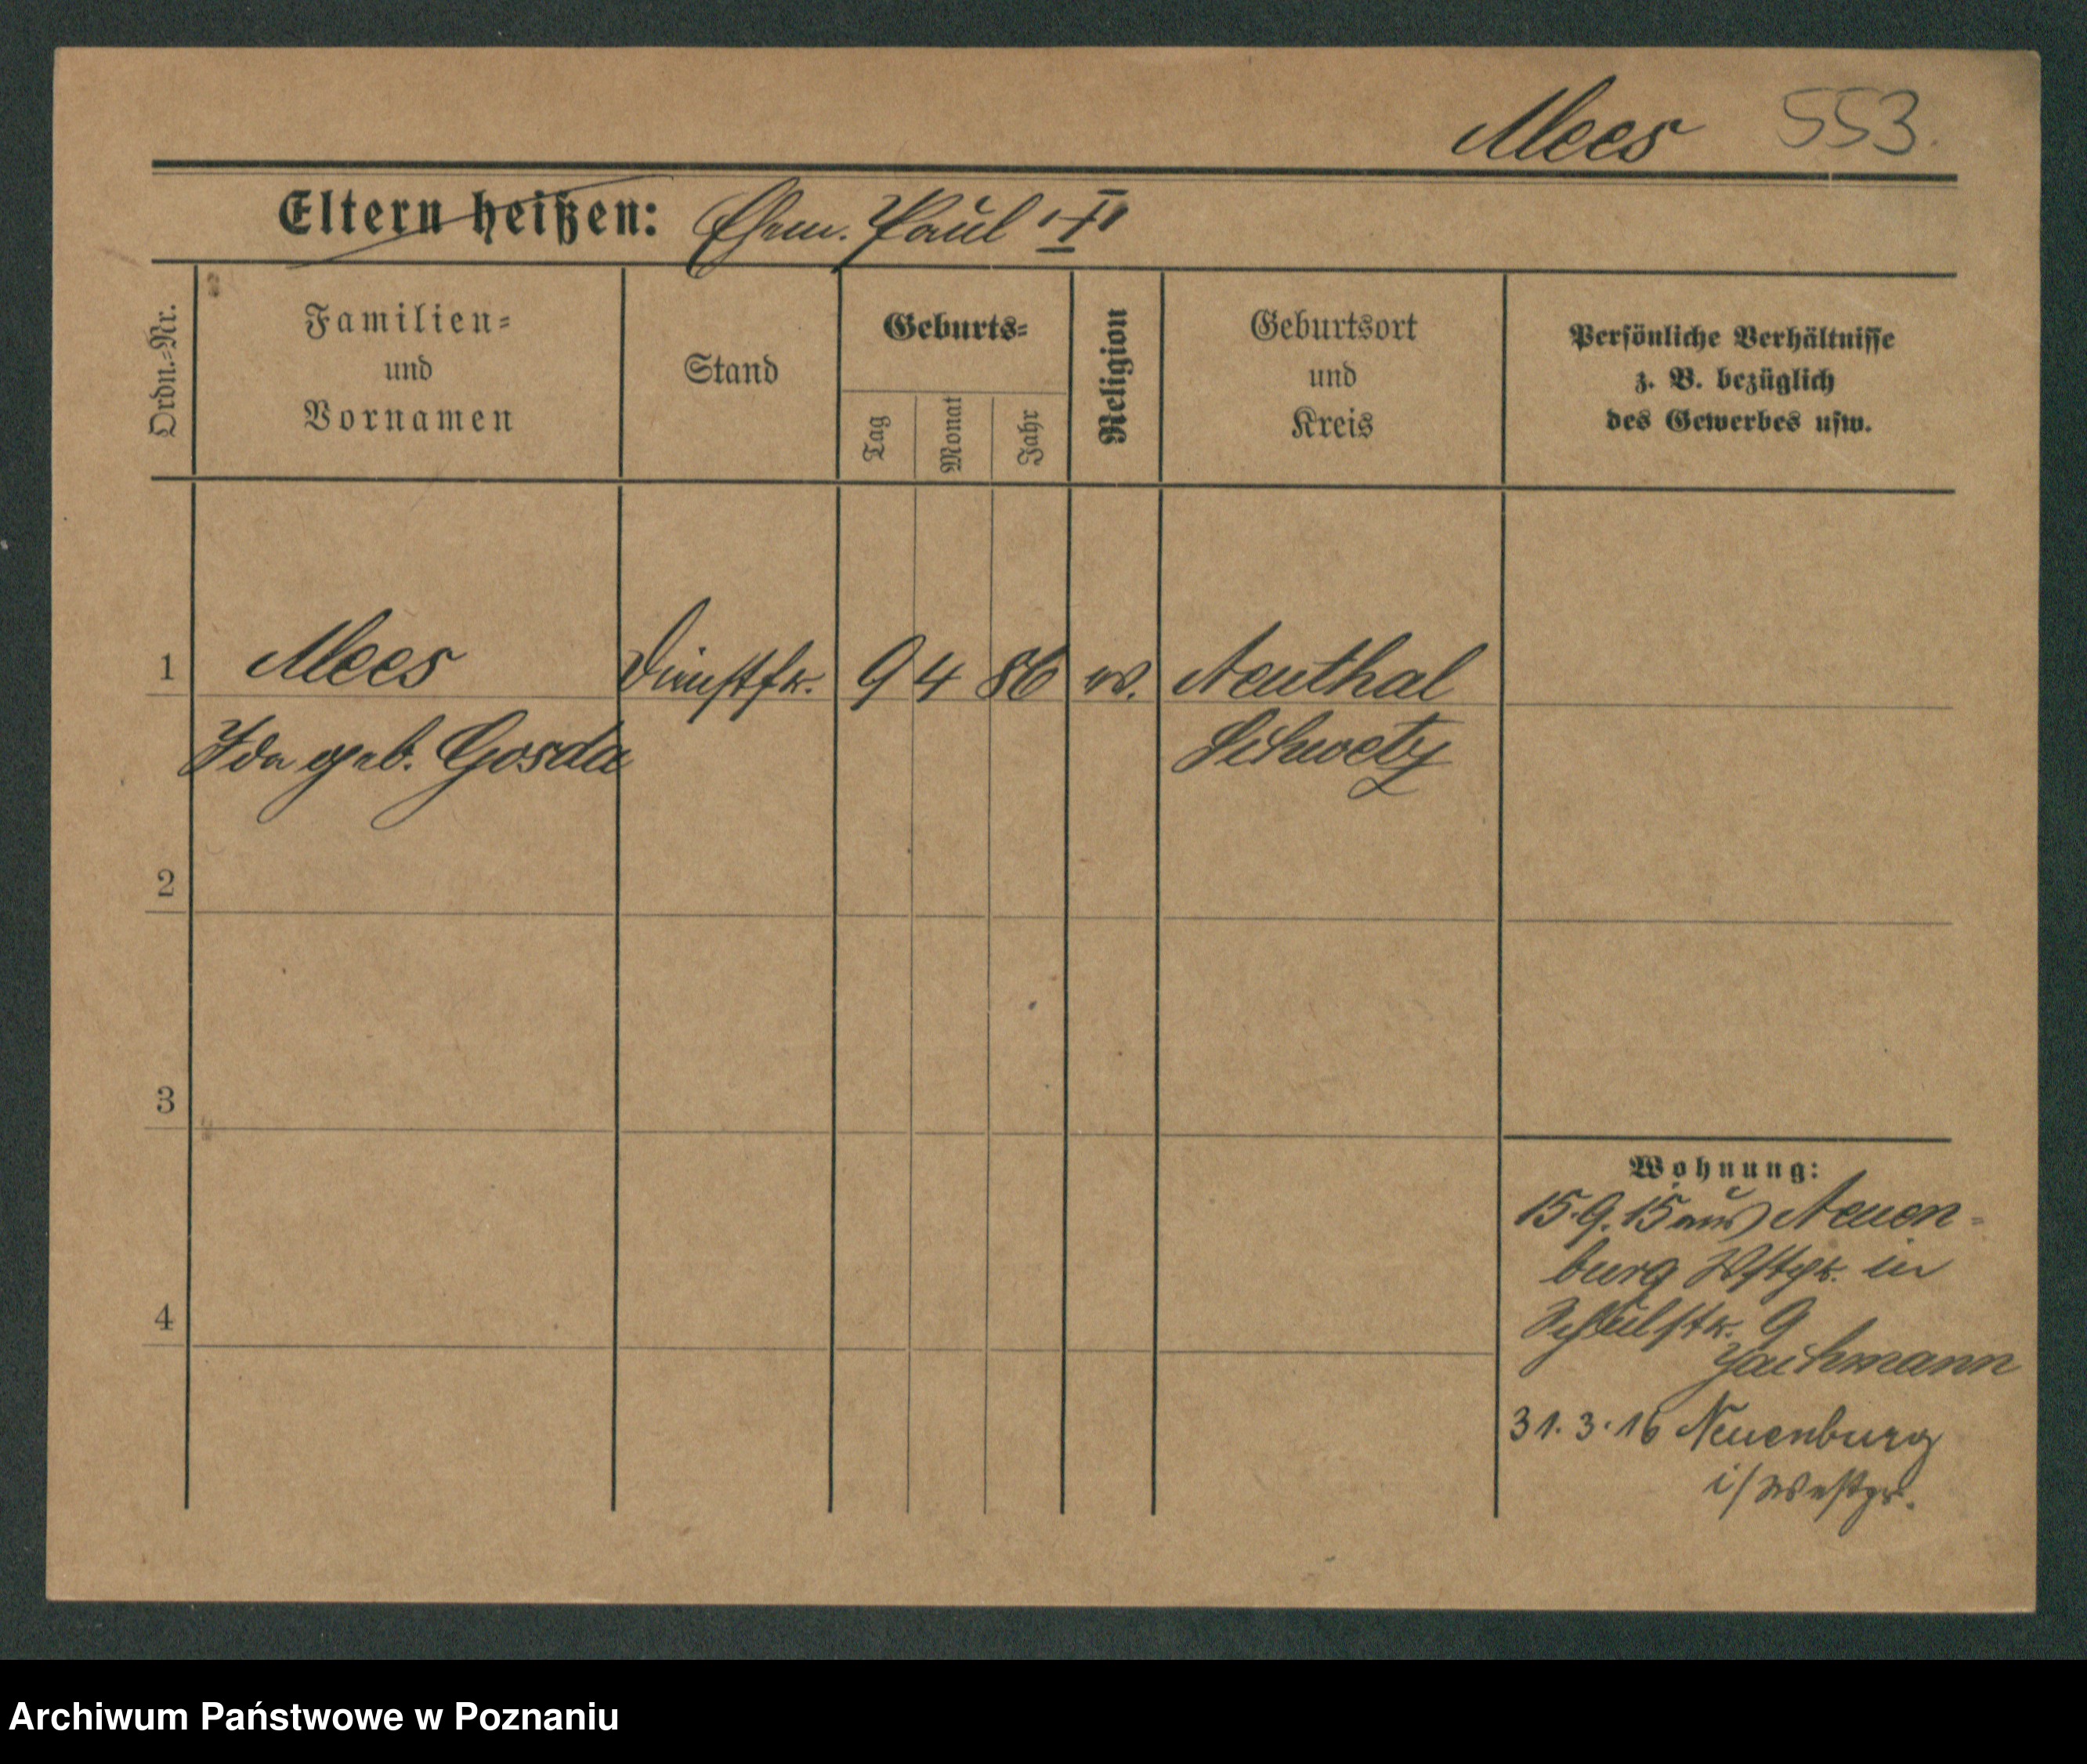 Mees 553.
Eltern heißen: Ehem. Paul "I"
Ordn.-Nr.
Familien-
und
Vornamen
Stand
Geburts-
Tag
Monat
Jahr
Religion
Geburtsort
und
Kreis
Persönliche Verhältnisse
z. B. bezüglich
des Gewerbes usw.
1 Mees 9 4 86 Neuthal
Ida geb. Gosda Schwetz
2
3
4
Wohnung:
15.9.15 aus Neuen-
burg Wstpr. in
9
Jachmann
31.3.16 Neuenburg
i/Westpr.
Archiwum Państwowe w Poznaniu